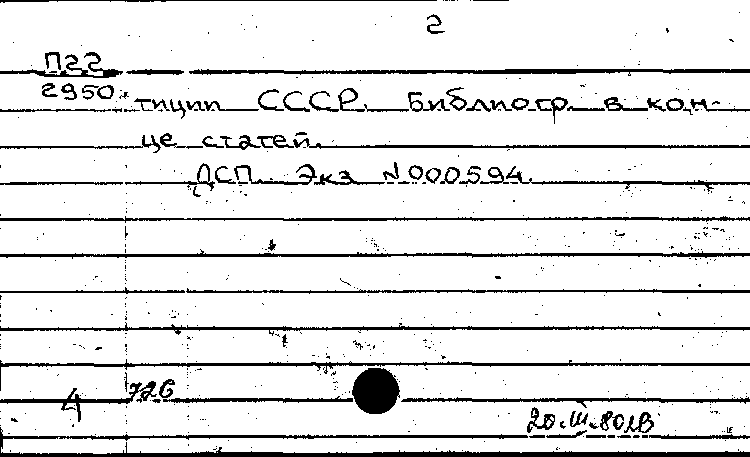 2
П22
2950 тиции СССР. Библиогр. в кон-
це статей.
ДСП. Экз №000594.
4 726
20.III.80